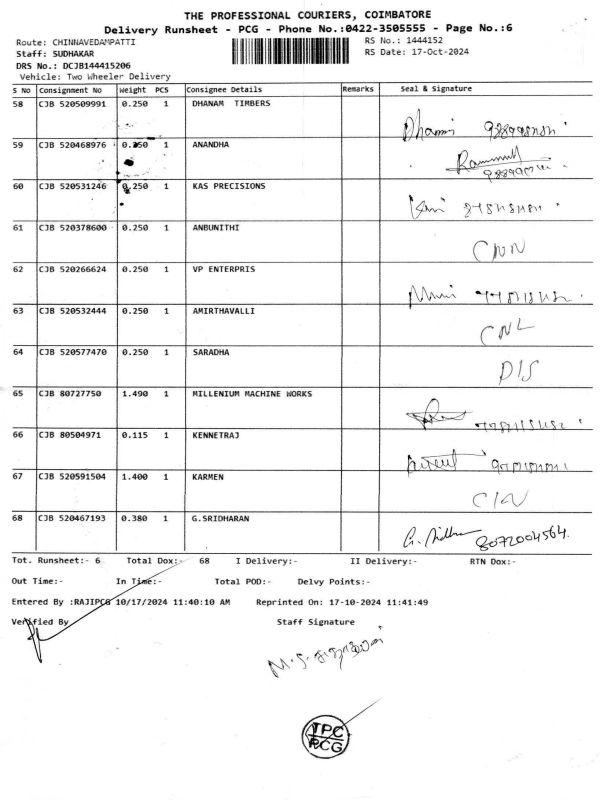 THE PROFESSIONAL COURIERS, COIMBATORE
Delivery Runsheet - PCG - Phone No.:0422-3505555 - Page No.:6
Route: CHINNAVEDAMPATTI RS No.: 1444152
Staff: SUDHAKAR RS Date: 17-Oct-2024
DRS No.: DCJB144415206
Vehicle: Two Wheeler Delivery
S No Consignment No Weight PCS Consignee Details Remarks Seal & Signature
58 CJB 520509991 0.250 1 DHANAM TIMBERS
Dhanam
59 CJB 520468976 0.250 1 ANANDHA
60 CJB 520531246 0.250 1 KAS PRECISIONS
61 CJB 520378600 0.250 1 ANBUNITHI
62 CJB 520266624 0.250 1 VP ENTERPRIS
63 CJB 520532444 0.250 1 AMIRTHAVALLI
CNL
64 CJB 520577470 0.250 1 SARADHA
D/S
65 CJB 80727750 1.490 1 MILLENIUM MACHINE WORKS
66 CJB 80504971 0.115 1 KENNETRAJ
67 CJB 520591504 1.400 1 KARMEN
68 CJB 520467193 0.380 1 G.SRIDHARAN
G. Sridhar 8072004564.
Tot. Runsheet:- 6 Total Dox:- 68 I Delivery:- II Delivery:- RTN Dox:-
Out Time:- In Time:- Total POD:- Delvy Points:-
Entered By :RAJIPCG 10/17/2024 11:40:10 AM Reprinted On: 17-10-2024 11:41:49
Verified By Staff Signature
M.S.
TPC
PCG